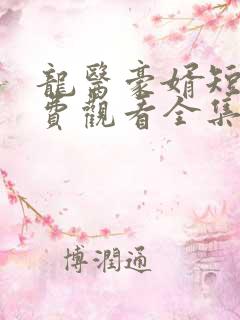 龍醫豪婿短
費觀看全集
博潤通